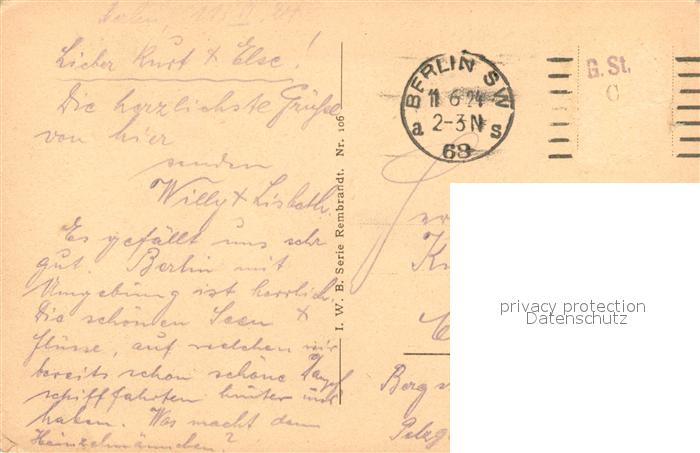 Berlin, 11. VI. 24.
Lieber Kurt & Else!
Die herzlichste Grüße
von hier
senden
Willy & Lisbeth.
Es gefällt uns sehr
gut. Berlin mit
Umgebung ist herrlich.
Die schönen Seen &
Flüsse, auf welchen wir
bereits schon schöne Dampf
schiffahrten hinter uns
haben. Was macht denn
Heinzelmännchen?
I. W. B. Serie Rembrandt. Nr. 106
BERLIN SW
11 6 24
2-3N
a s
68
G. St.
C
Berg
Pelzg
privacy protection
Datenschutz